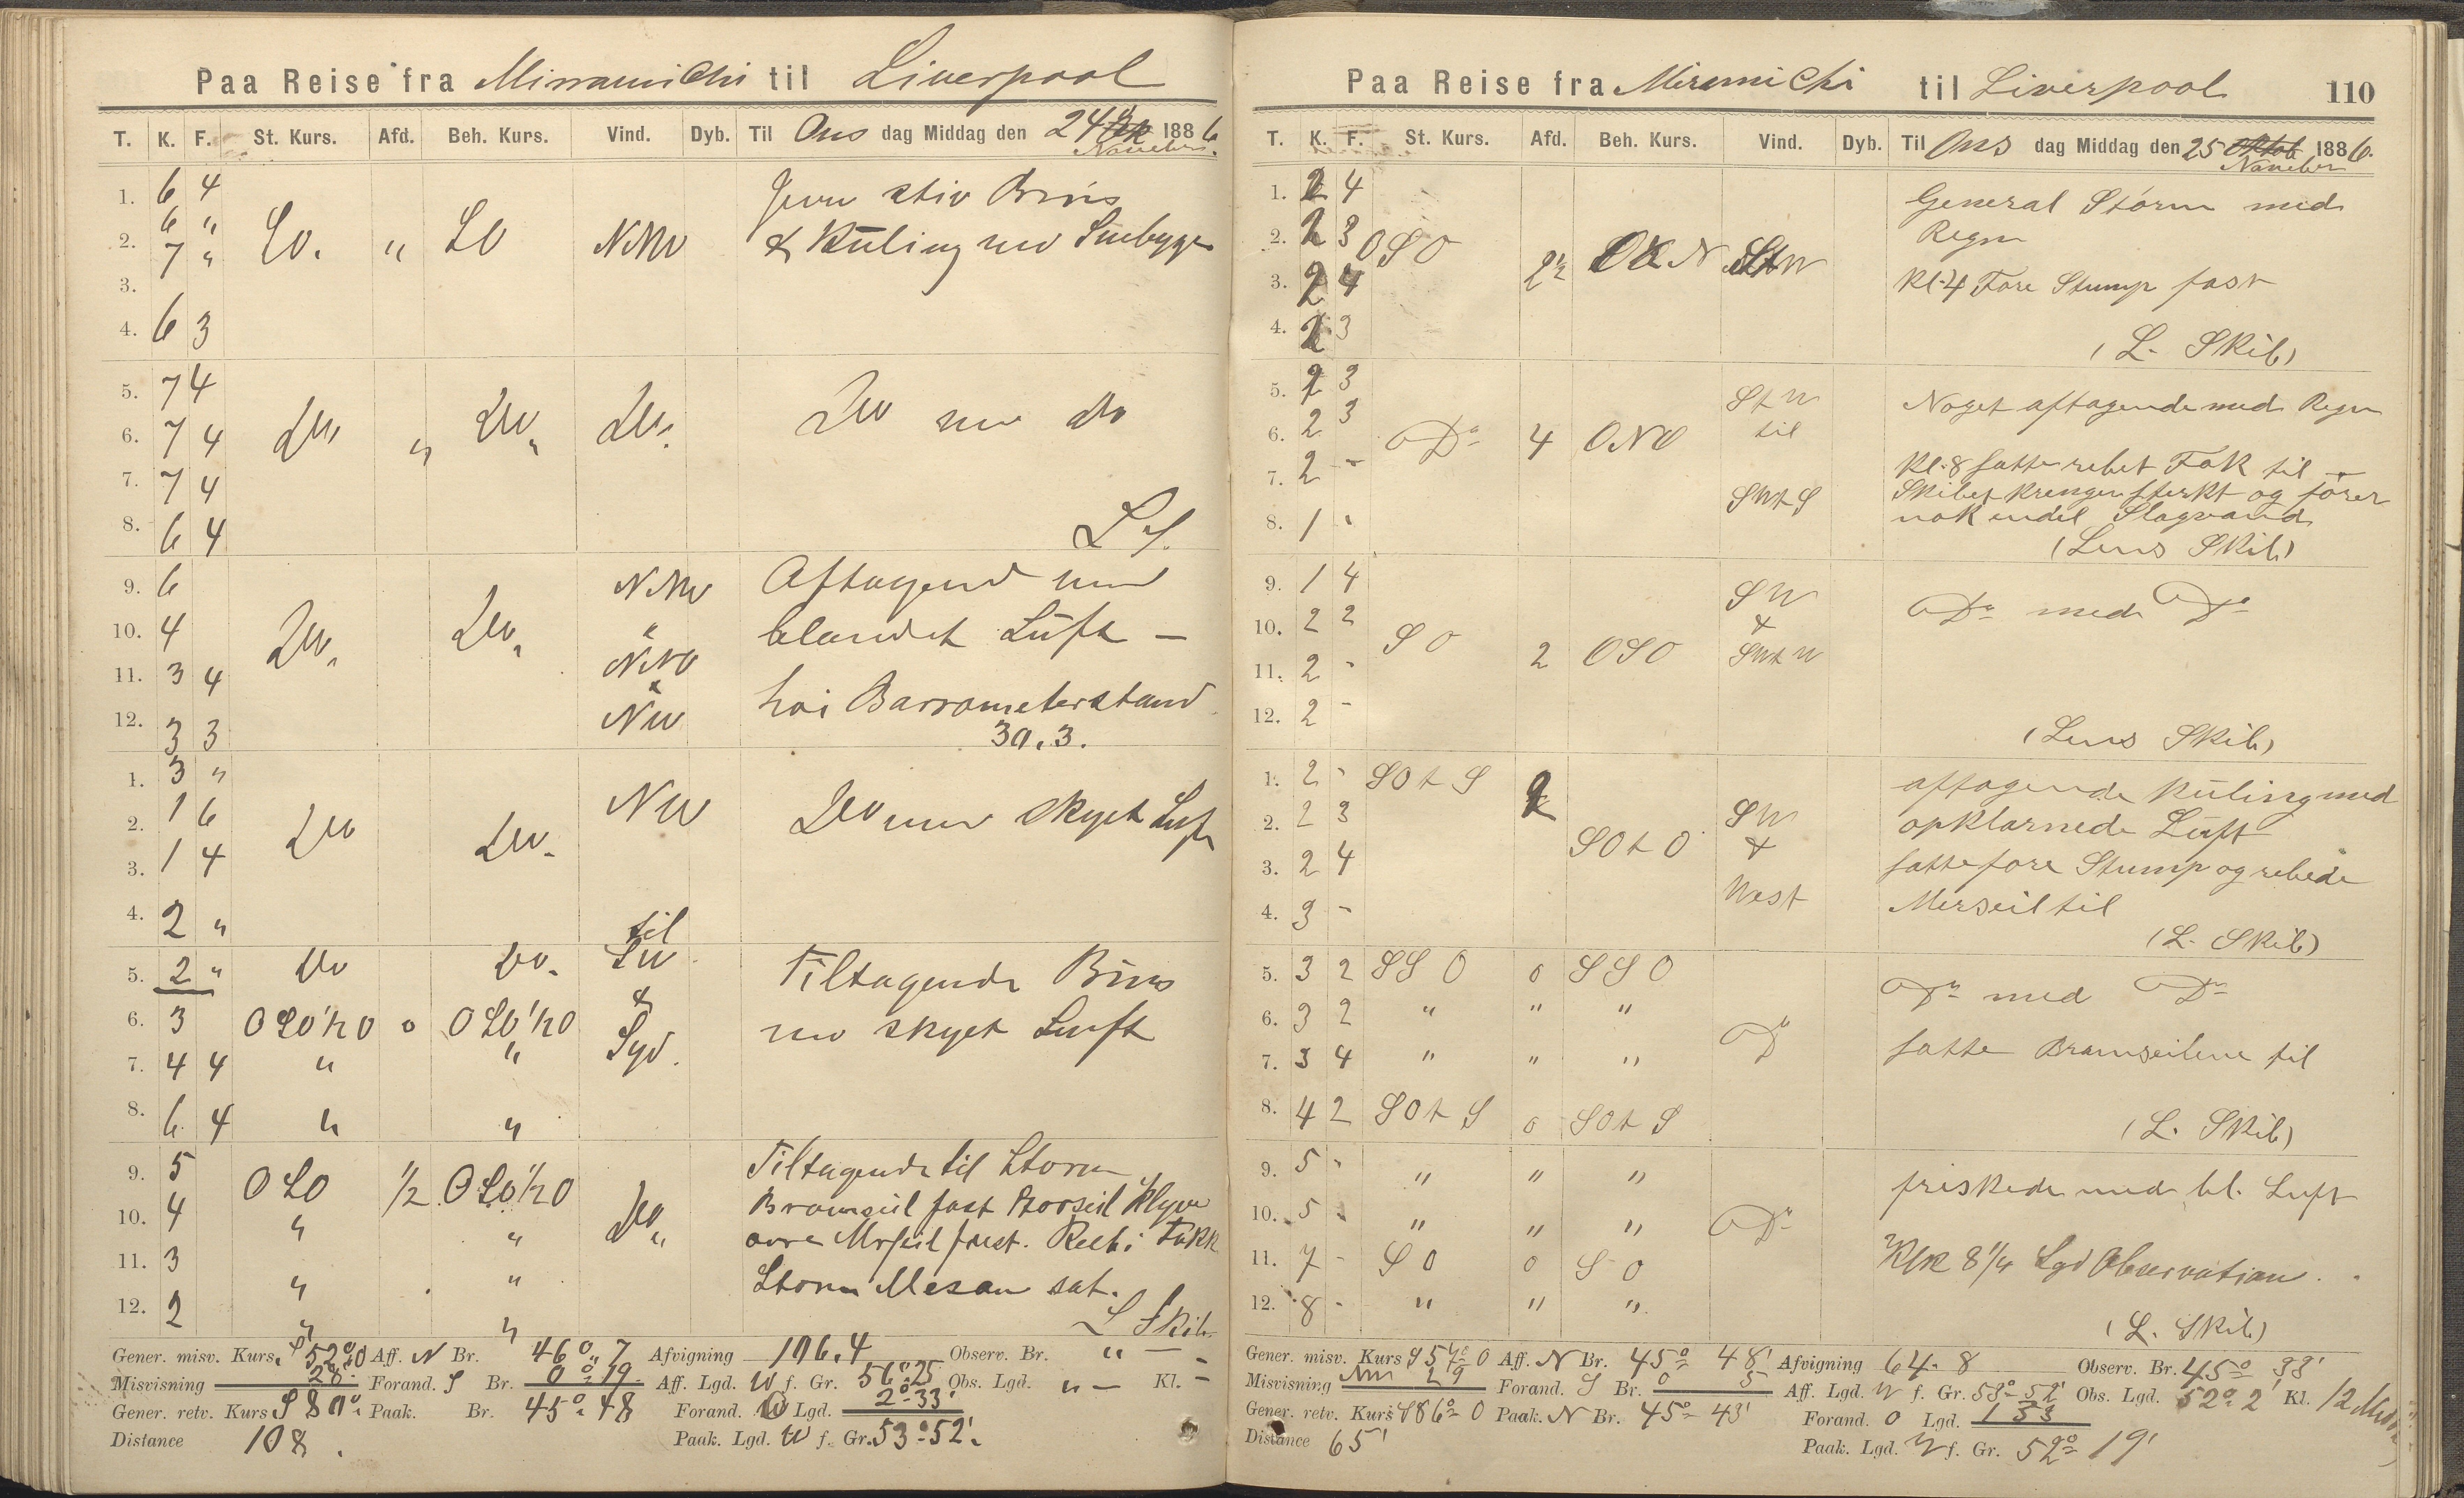 Paa Reise fra Mirramichi til Liverpool
T. K. F. St. Kurs. Afd. Beh. Kurs. Vind. Dyb. Til Ons dag Middag den 24 Okt 1886
November.
1. 6 4
2. 6 "
3. 7 "
4. 6 3
SO. " SO NNW
Jevn stiv Bris
& Kuling md Snebyger
5. 7 4
6. 7 4
7. 7 4
8. 6 4
Do " Do " Do.
Do md do
L S.
9. 6
10. 4
11. 3 4
12. 3 3
Do. Do.
NNW
&
NNO
&
NW
Aftagend md
blandet Luft —
hoi Barrometerstand
30.3.
1. 3 "
2. 1 6
3. 1 4
4. 2 "
Do Do. NW
til
Do md skyet Luft
5. 2 " Do Do. SW
6. 3 OSO½O o OSO½O &
7. 4 4 " " Syd.
8. 6 4 " "
Tiltagende Bris
md skyet Luft
9. 5 OSO ½ OSO½O
10. 4 " " Do "
11. 3 " "
12. 2 " "
Tiltagende til Storm
Bramseil fast Storseil Klyver
øvre Merseil fast. Reeb i Fokk
Storm Mesan sat.
L Skib.
Gener. misv. Kurs. S 52° O Aff. N Br. 46° 7 Afvigning 106.4 Observ. Br. " —
Misvisning 28° Forand. S Br. 0° 19 Aff. Lgd. W f. Gr. 56° 25 Obs. Lgd. " — Kl. -
Gener. retv. Kurs S 80° Paak. Br. 45° 48 Forand. O Lgd. 2° 33'
Distance 108. Paak. Lgd. W f. Gr. 53° 52'.
Paa Reise fra Miramichi til Liverpool 110
T. K. F. St. Kurs. Afd. Beh. Kurs. Vind. Dyb. Til Ons dag Middag den 25 Oktob 1886.
November
1. 2 4
2. 2 3
3. 2 4
4. 2 3
OSO 2½
General Storm med
Regn
Kl. 4 Fore Stump fast
(L. Skib)
5. 2 3
6. 2 3
7. 2 -
8. 1 -
Do 4 ONO
StW
til
SWtS
Noget aftagende med Regn
Kl. 8 satte rebet Fok til
Skibet krenger sterkt og förer
nok endel Slagvand
(Lens Skib)
9. 1 4
10. 2 2
11. 2 -
12. 2 -
SO 2 OSO
SW
&
SWtW
Do med Do
(Lens Skib)
1. 2 - SOtS 2
2. 2 3
3. 2 4
4. 3 -
SOtO
SW
&
West
aftagende Kuling med
opklarnede Luft
satte fore Stump og rebede
Merseil til
(L. Skib)
5. 3 2 SSO 0 SSO
6. 3 2 " " "
7. 3 4 " " " Do
8. 4 2 SOtS 0 SOtS
Do med Do
satte Bramseilene til
(L. Skib)
9. 5 - " " "
10. 5 - " " " Do
11. 7 - SO 0 SO
12. 8 - " " "
friskede med bl. Luft
Klk 8¼ Lgd Observation.
(L. Skib)
Gener. misv. Kurs S 57° O Aff. N Br. 45° 48' Afvigning 64.8 Observ. Br. 45° 33'
Misvisning NW 29 Forand. S Br. 0 5 Aff. Lgd. W f. Gr. 53° 52' Obs. Lgd. 52° 2' Kl. 12 Midd
Gener. retv. Kurs S 86° O Paak. N Br. 45° 43' Forand. O Lgd. 1 33
Distance 65' Paak. Lgd. W f. Gr. 52° 19'